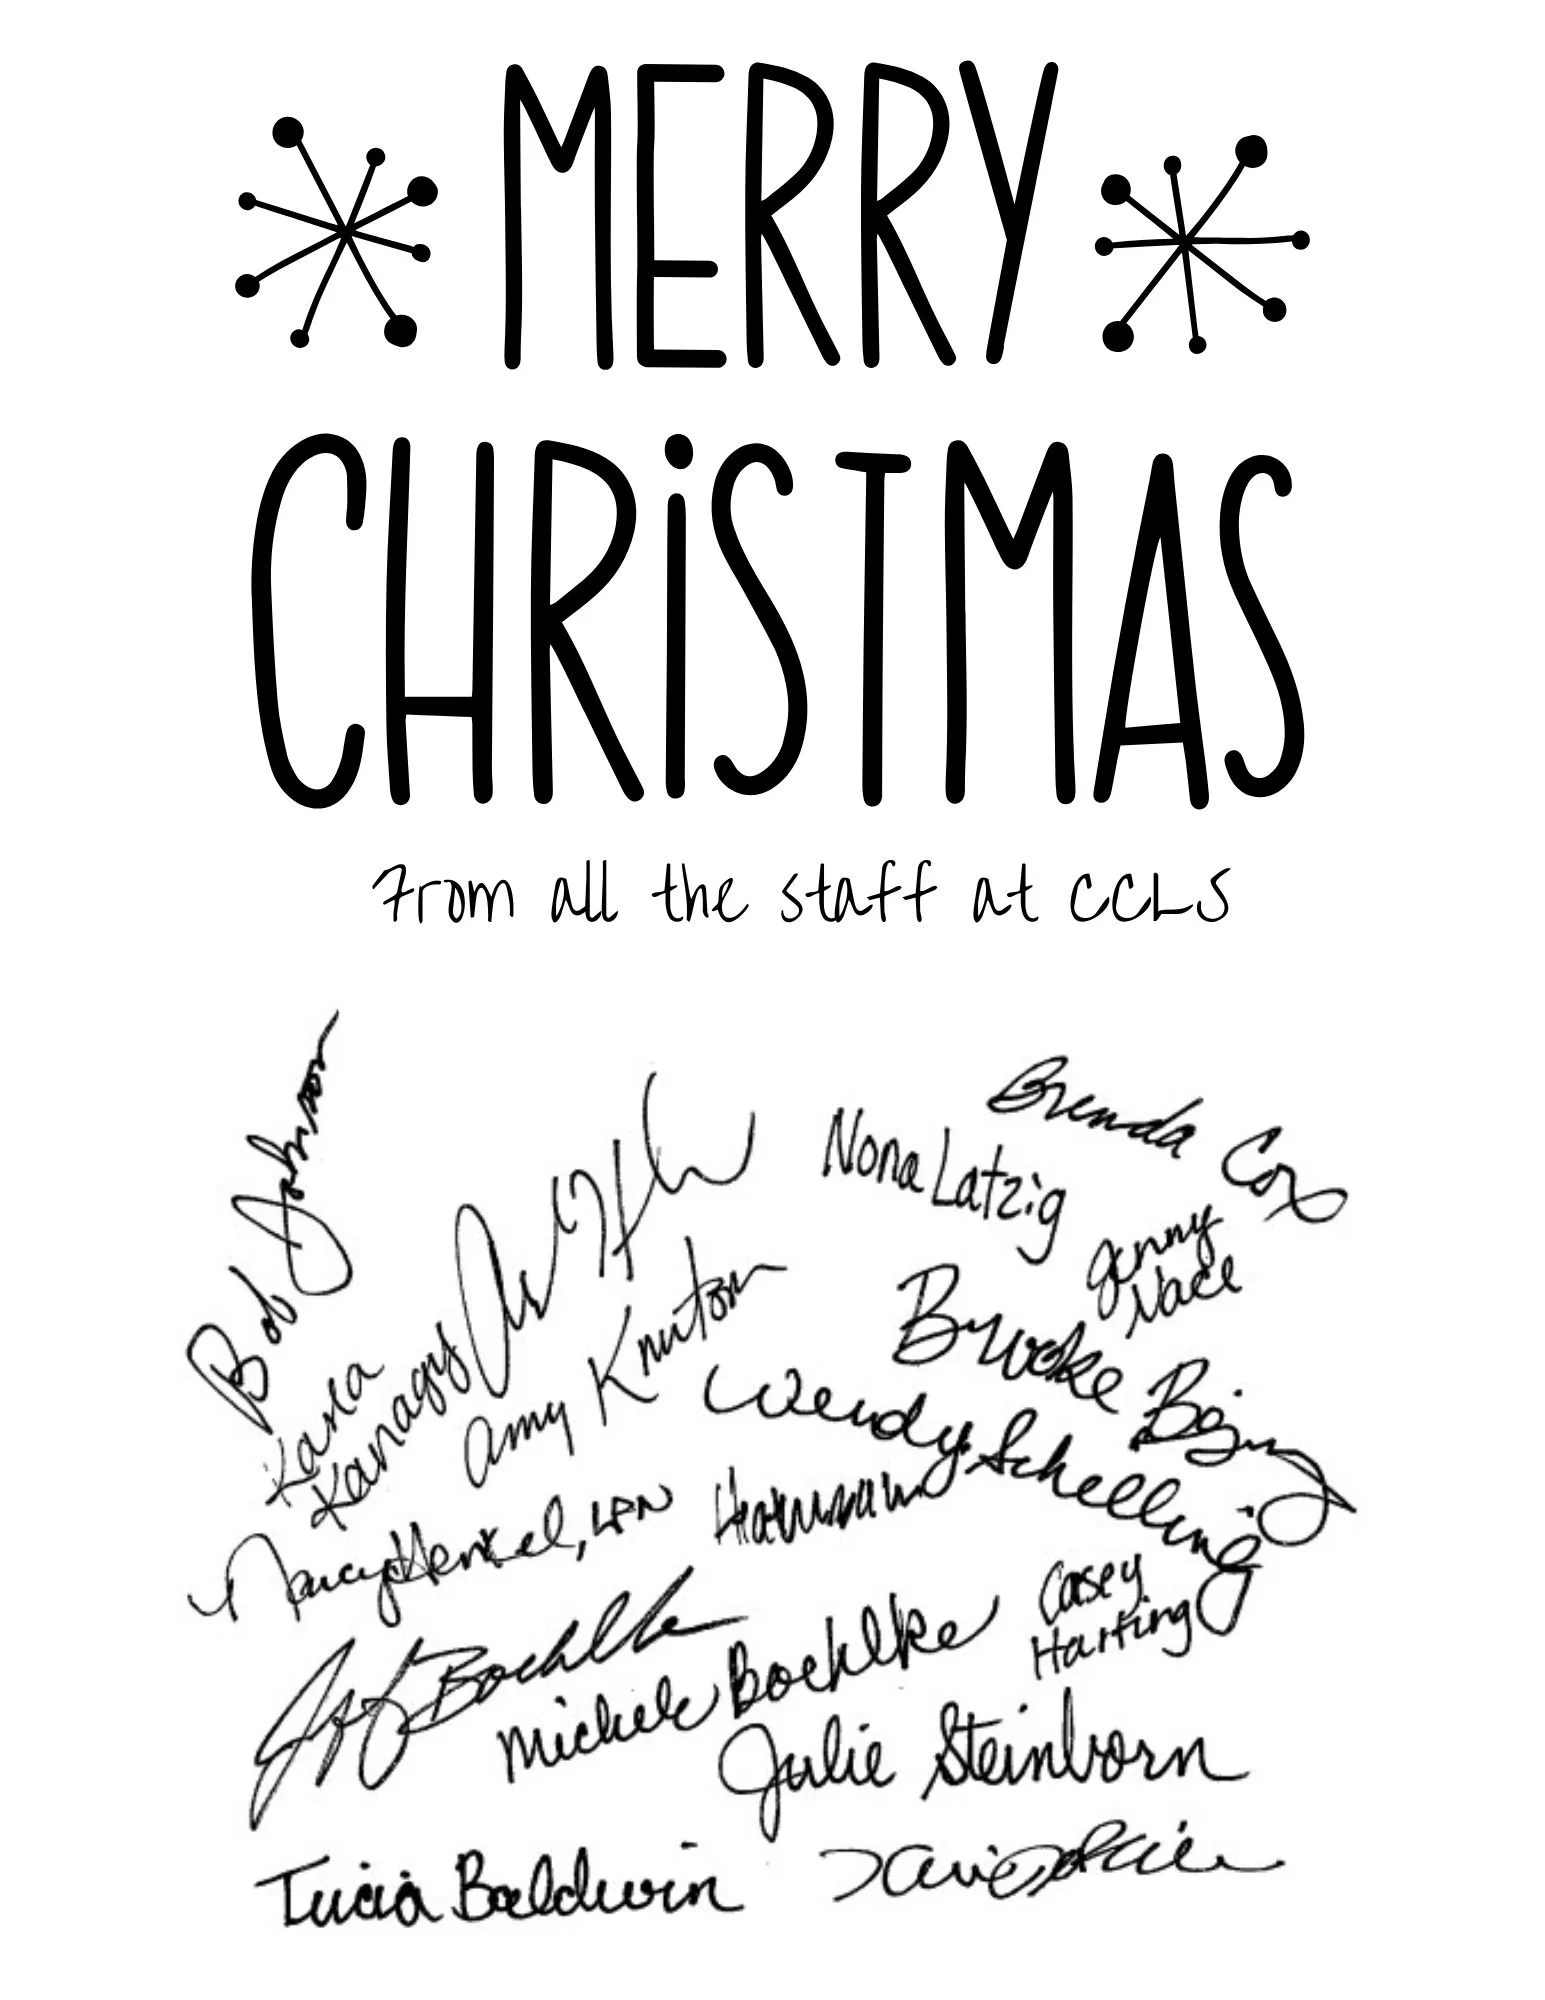 MERRY
CHRiSTMAS
From all the staff at CCLS
Bob Johnson
Brenda Cox
Nona Latzig
Jenny
Nace
Karla
Kanagy
Amy Knutson
Brooke
Wendy Schelling
Nancy Henkel, LPN
Casey
Harting
Jeff Boehlke
Michele Boehlke
Julie Steinborn
Tricia Baldwin